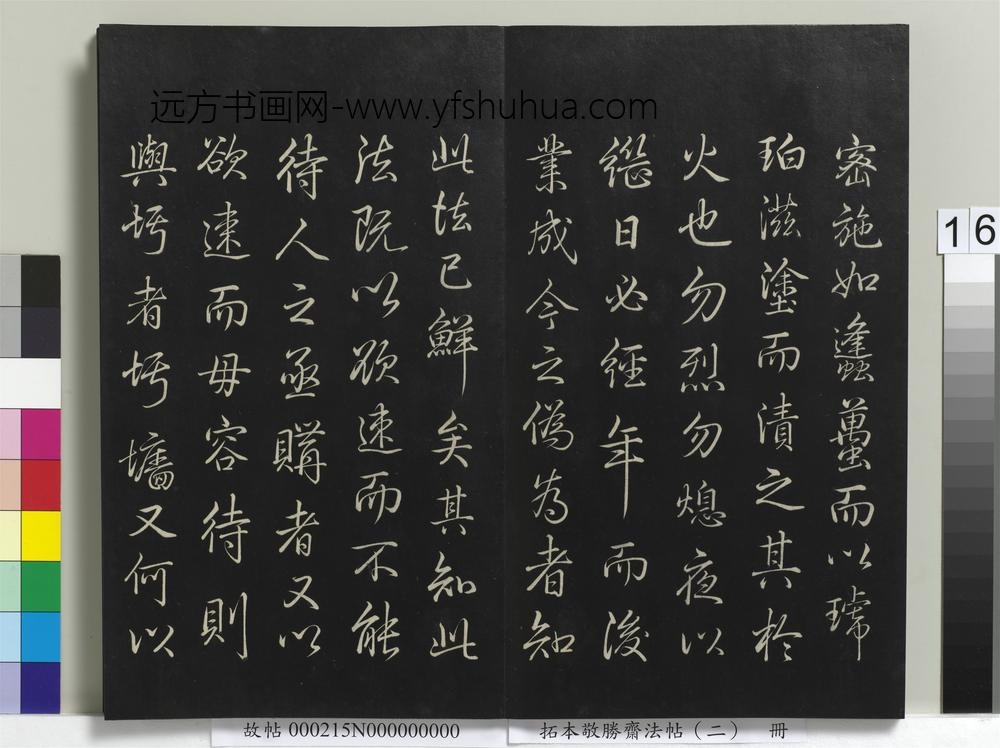 远方书画网-www.yfshuhua.com
密施如蠭蠆而以
珀滋塗而漬之其於
火也勿烈勿熄夜以
繼日必經年而後
業成今之偽為者知
此法已鮮矣其知此
法既以欲速而不能
待人之亟購者又以
欲速而毋容待則
與圬者圬墻又何以
16
故帖 000215N000000000
拓本敬勝齋法帖（二） 冊